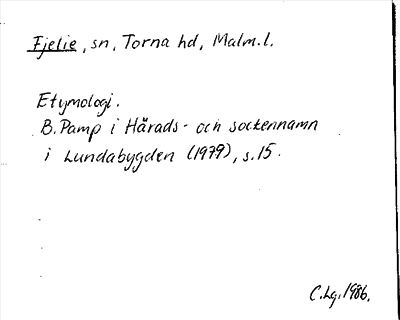 Fjelie, sn, Torna hd, Malm.l.
Etymologi.
B. Pamp i Härads- och sockennamn
i Lundabygden (1979), s.15.
C.Lg. 1986.